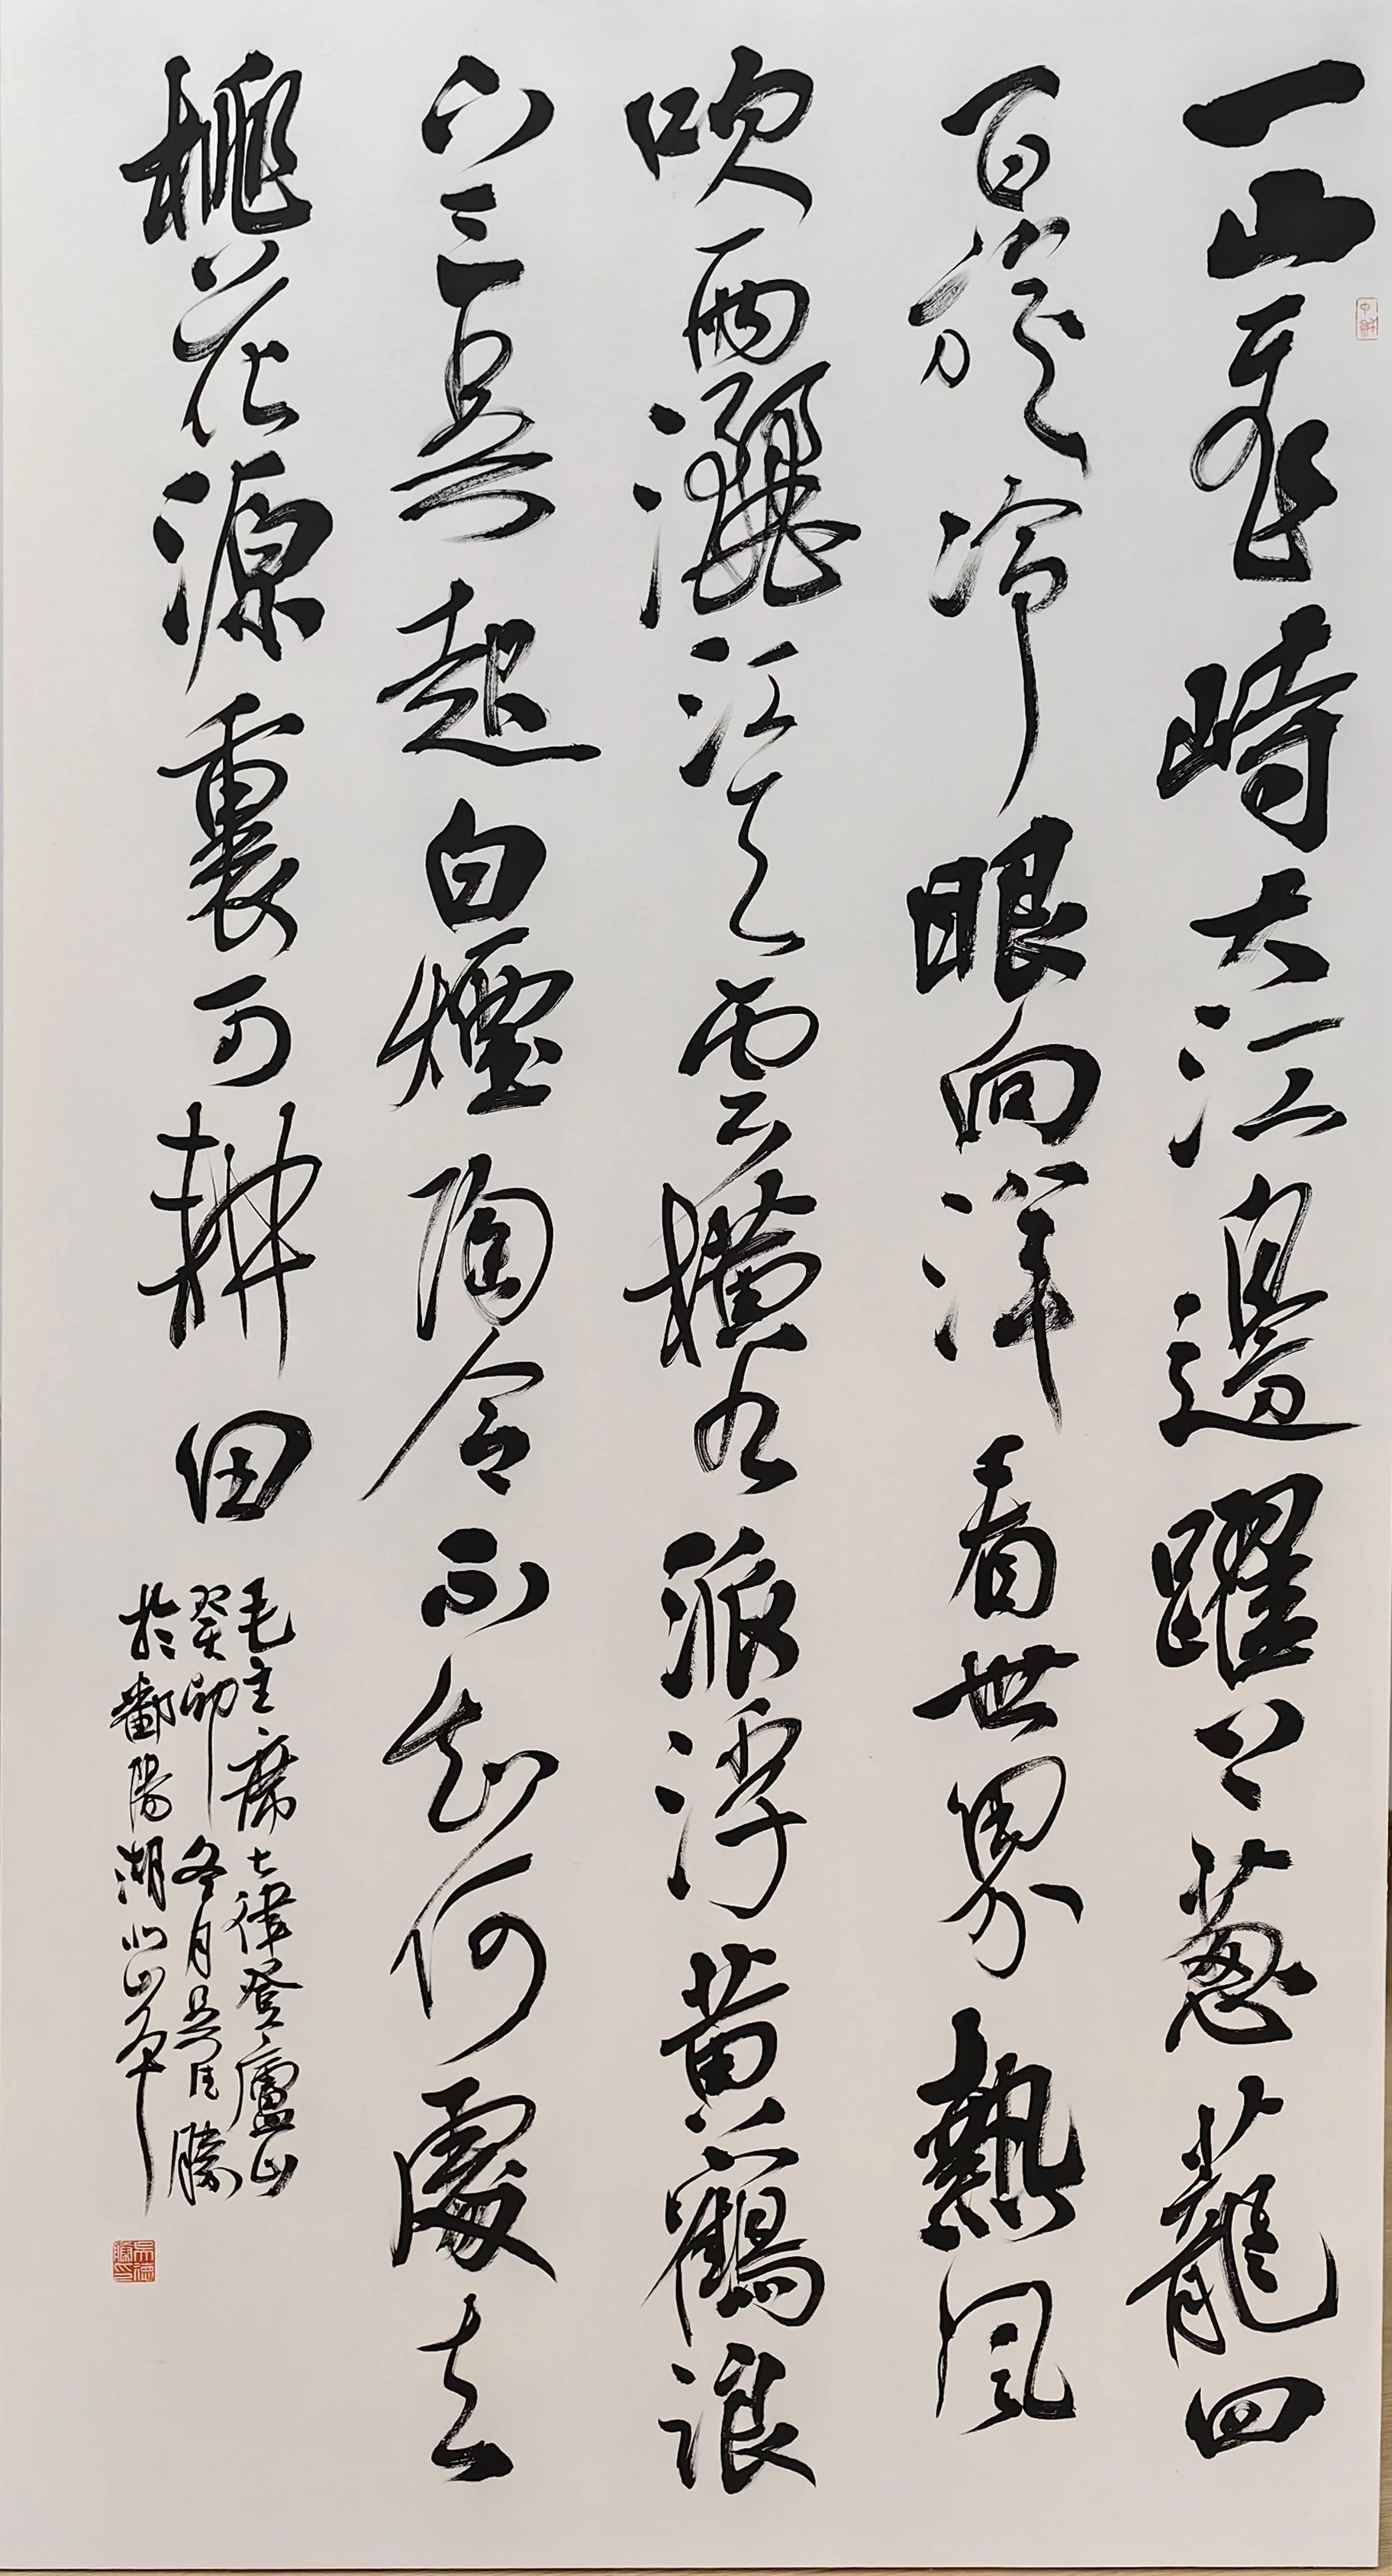 一山飛峙大江邊躍上葱蘢四
百旋冷眼向洋看世界熱風
吹雨灑江天雲橫九派浮黄鶴浪
下三吳起白煙陶令不知何處去
桃花源裏可耕田
毛主席七律登廬山
癸卯冬月吳德勝
於鄱陽湖北岸
吳德勝印